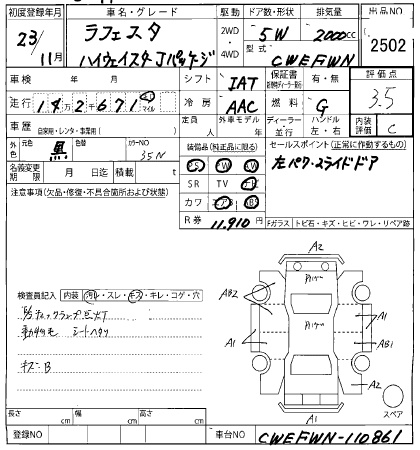 初度登録年月 車名・グレード 駆動 ドア数・形状 排気量 出品NO
23/11月 ラフェスタ 2WD・4WD 5W 2000cc 2502
ハイウェイスターJパッケージ 型式 CWEFWN
車検 年 月 シフト IAT 保証書 有・無 評価点 3.5
走行 142671 km マイル 冷房 AAC 燃料 G
車歴 自家用・レンタ・事業用( ) 定員 人 外車モデル 年 ディーラー 並行 ハンドル 左・右 内装評価 C
外色 元色 黒 色替 カラーNO 35N 装備品(純正品に限る) セールスポイント(正常に作動するもの)
名義変更期限 月 日迄 積載 t PS PW 左パワースライドドア
注意事項(欠品・修復・不具合箇所および状態) SR TV ナビ
カワ エアB ABS
R券 11,910円 Fガラス トビ石・キズ・ヒビ・ワレ・リペア跡
検査員記入 内装 汚レ・スレ・キズ・キレ・コゲ・穴
シートヘタリ
キズB
A2
A2B2
A1
A1
AB1
A2
A1
スペア
長さ cm 幅 cm 高さ cm
登録NO 車台NO CWEFWN-110861